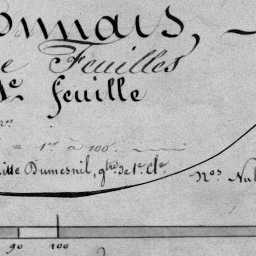 onnais,
e Feuilles
1e feuille
1er à 100
itte Dumesnil, gtre de 1e Cle
Nos Nu
90 100